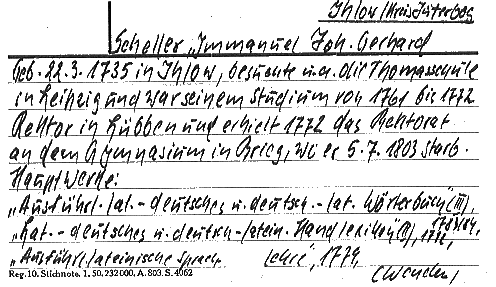 Ihlow/Kreis Jüterbog
Scheller, Immanuel Joh. Gerhard
Geb. 22.3.1735 in Ihlow, besuchte u.a. die Thomasschule
in Leipzig und war seinem Studium von 1761 bis 1772
Rektor in Lübben und erhielt 1772 das Rektorat
an dem Gymnasium in Brieg, wo er 5.7.1803 starb.
Hauptwerke:
„Ausführl. lat.-deutsches u. deutsch.-lat. Wörterbuch (III),
„Lat.-deutsches u. deutsch-latein. Handlexikon
„Ausführl. lateinische Sprachlehre", 1779.
Reg. 10. Stichnote. 1. 50. 232000. A. 803. S. 4062